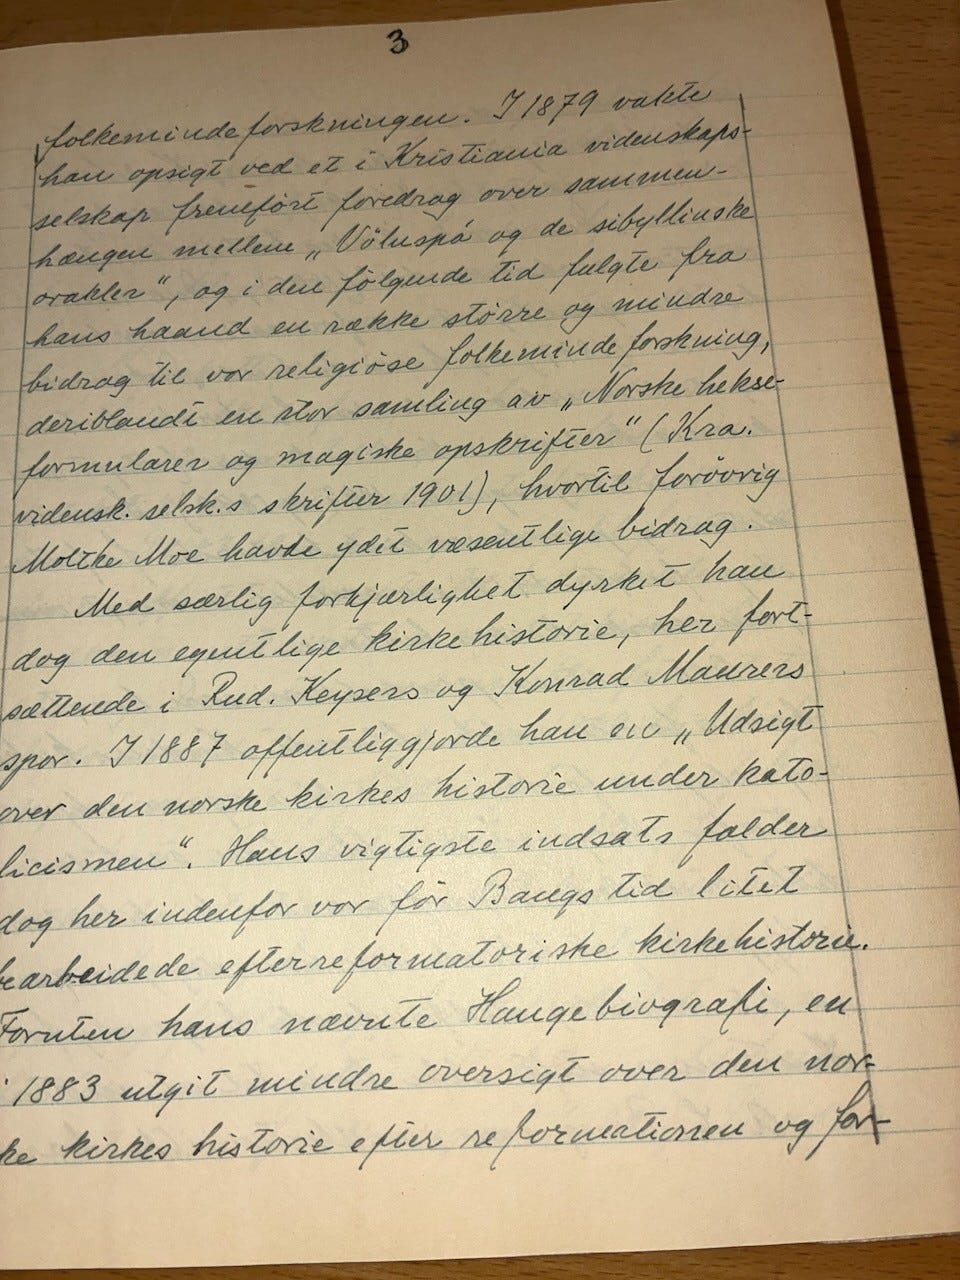 3
folkemindeforskningen. I 1879 vakte
han opsigt ved et i Kristiania videnskaps-
selskap fremført foredrag over sammen-
hængen mellem „Völuspá og de sibyllinske
orakler", og i den følgende tid fulgte fra
hans haand en række större og mindre
bidrag til vor religiöse folkemindeforskning,
deriblandt en stor samling av „Norske hekse-
formularer og magiske opskrifter" (Kra.
vidensk. selsk.s skrifter 1901), hvortil forövrig
Moltke Moe havde ydet væsentlige bidrag.
Med særlig forkjærlighet dyrket han
dog den egentlige kirkehistorie, her fort-
sættende i Rud. Keysers og Konrad Maurers
spor. I 1887 offentliggjorde han en „Udsigt
over den norske kirkes historie under kato-
licismen". Hans vigtigste indsats falder
dog her indenfor vor för Bangs tid litet
bearbeidede efterreformatoriske kirkehistorie.
Foruten hans nævnte Haugebiografi, en
i 1883 utgit mindre oversigt over den nor-
ke kirkes historie efter reformationen og for-